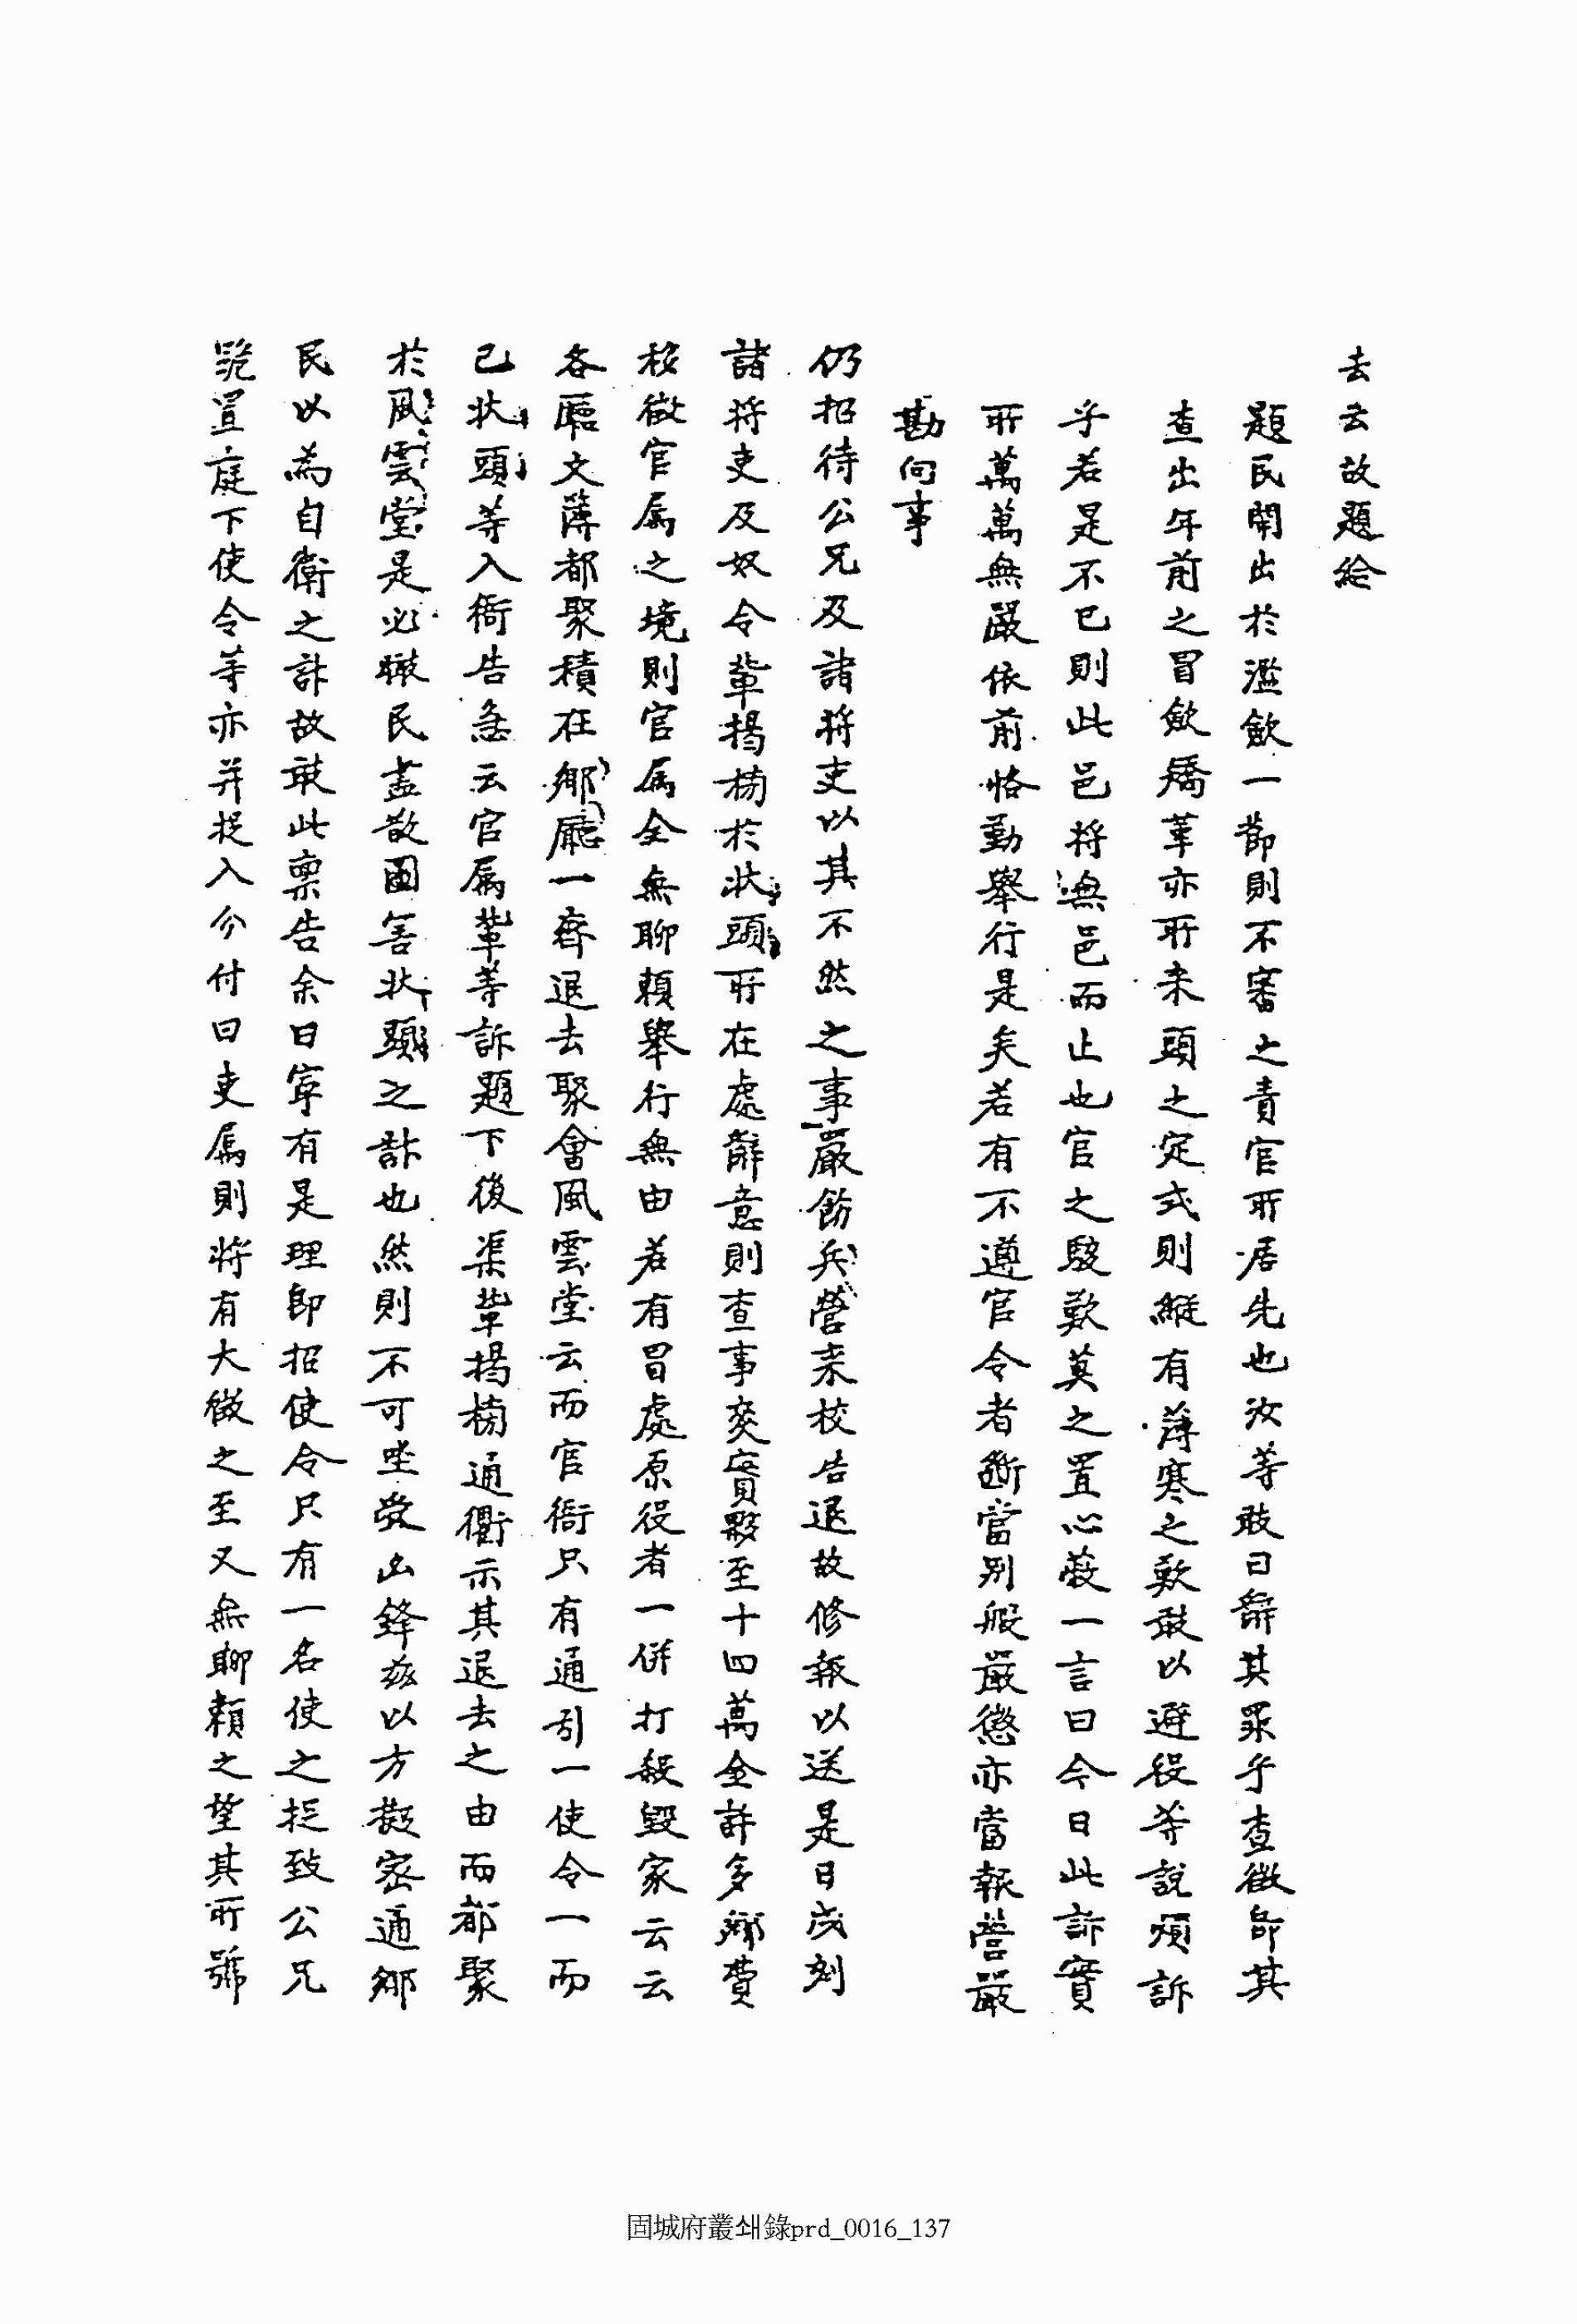 去去故題給
題民閙出於濫斂一節則不審之責官所居先也汝等敢曰辭其罪乎查徵命其
查出年前之冒斂矯革亦所未頭之定式則縱有薄寒之歎敢以避役等說煩訴
乎若是不已則此邑將無邑而止也官之駭歎莫之置心發一言曰今日此訴實
所萬萬無嚴依前恪勤擧行是矣若有不遵官令者斷當別般嚴懲亦當報營嚴
勘向事
仍招待公兄及諸將吏以其不然之事嚴飭兵營來校告退故修報以送是日戌刻
諸將吏及奴令輩揭榜於狀頭所在處辭意則查事奕賓夥至十四萬金許多鄕費
移徵官属之境則官属全無聊賴擧行無由若有冒處原役者一併打殺毁家云云
各廳文簿都聚積在鄕廳一齊退去聚會風雲堂云而官衙只有通引一使令一而
已狀頭等入衙告急云官属輩等訴題下後渠輩揭榜通衢示其退去之由而都聚
於風雲堂是必瞰民盡散圖害狀頭之計也然則不可坐受凶鋒玆以方擬密通鄕
民以為自衛之計故敢此稟告余曰寧有是理即招使令只有一名使之捉致公兄
跪置庭下使令等亦并捉入分付曰吏属則將有大徵之至又無聊賴之望其所號